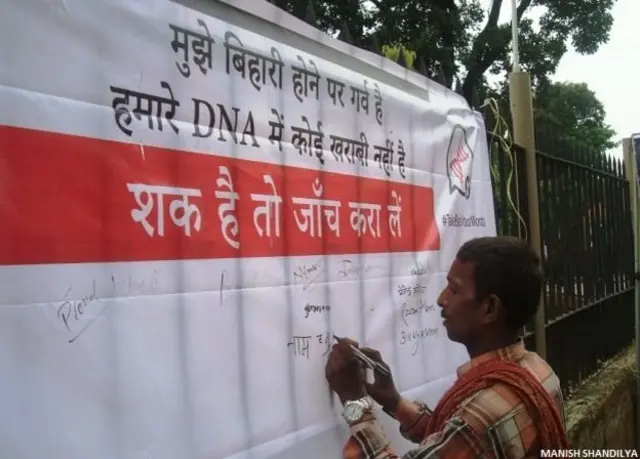 मुझे बिहारी होने पर गर्व है
हमारे DNA में कोई खराबी नहीं है
शक है तो जाँच करा लें
DNA
Proud
नाम
MANISH SHANDILYA